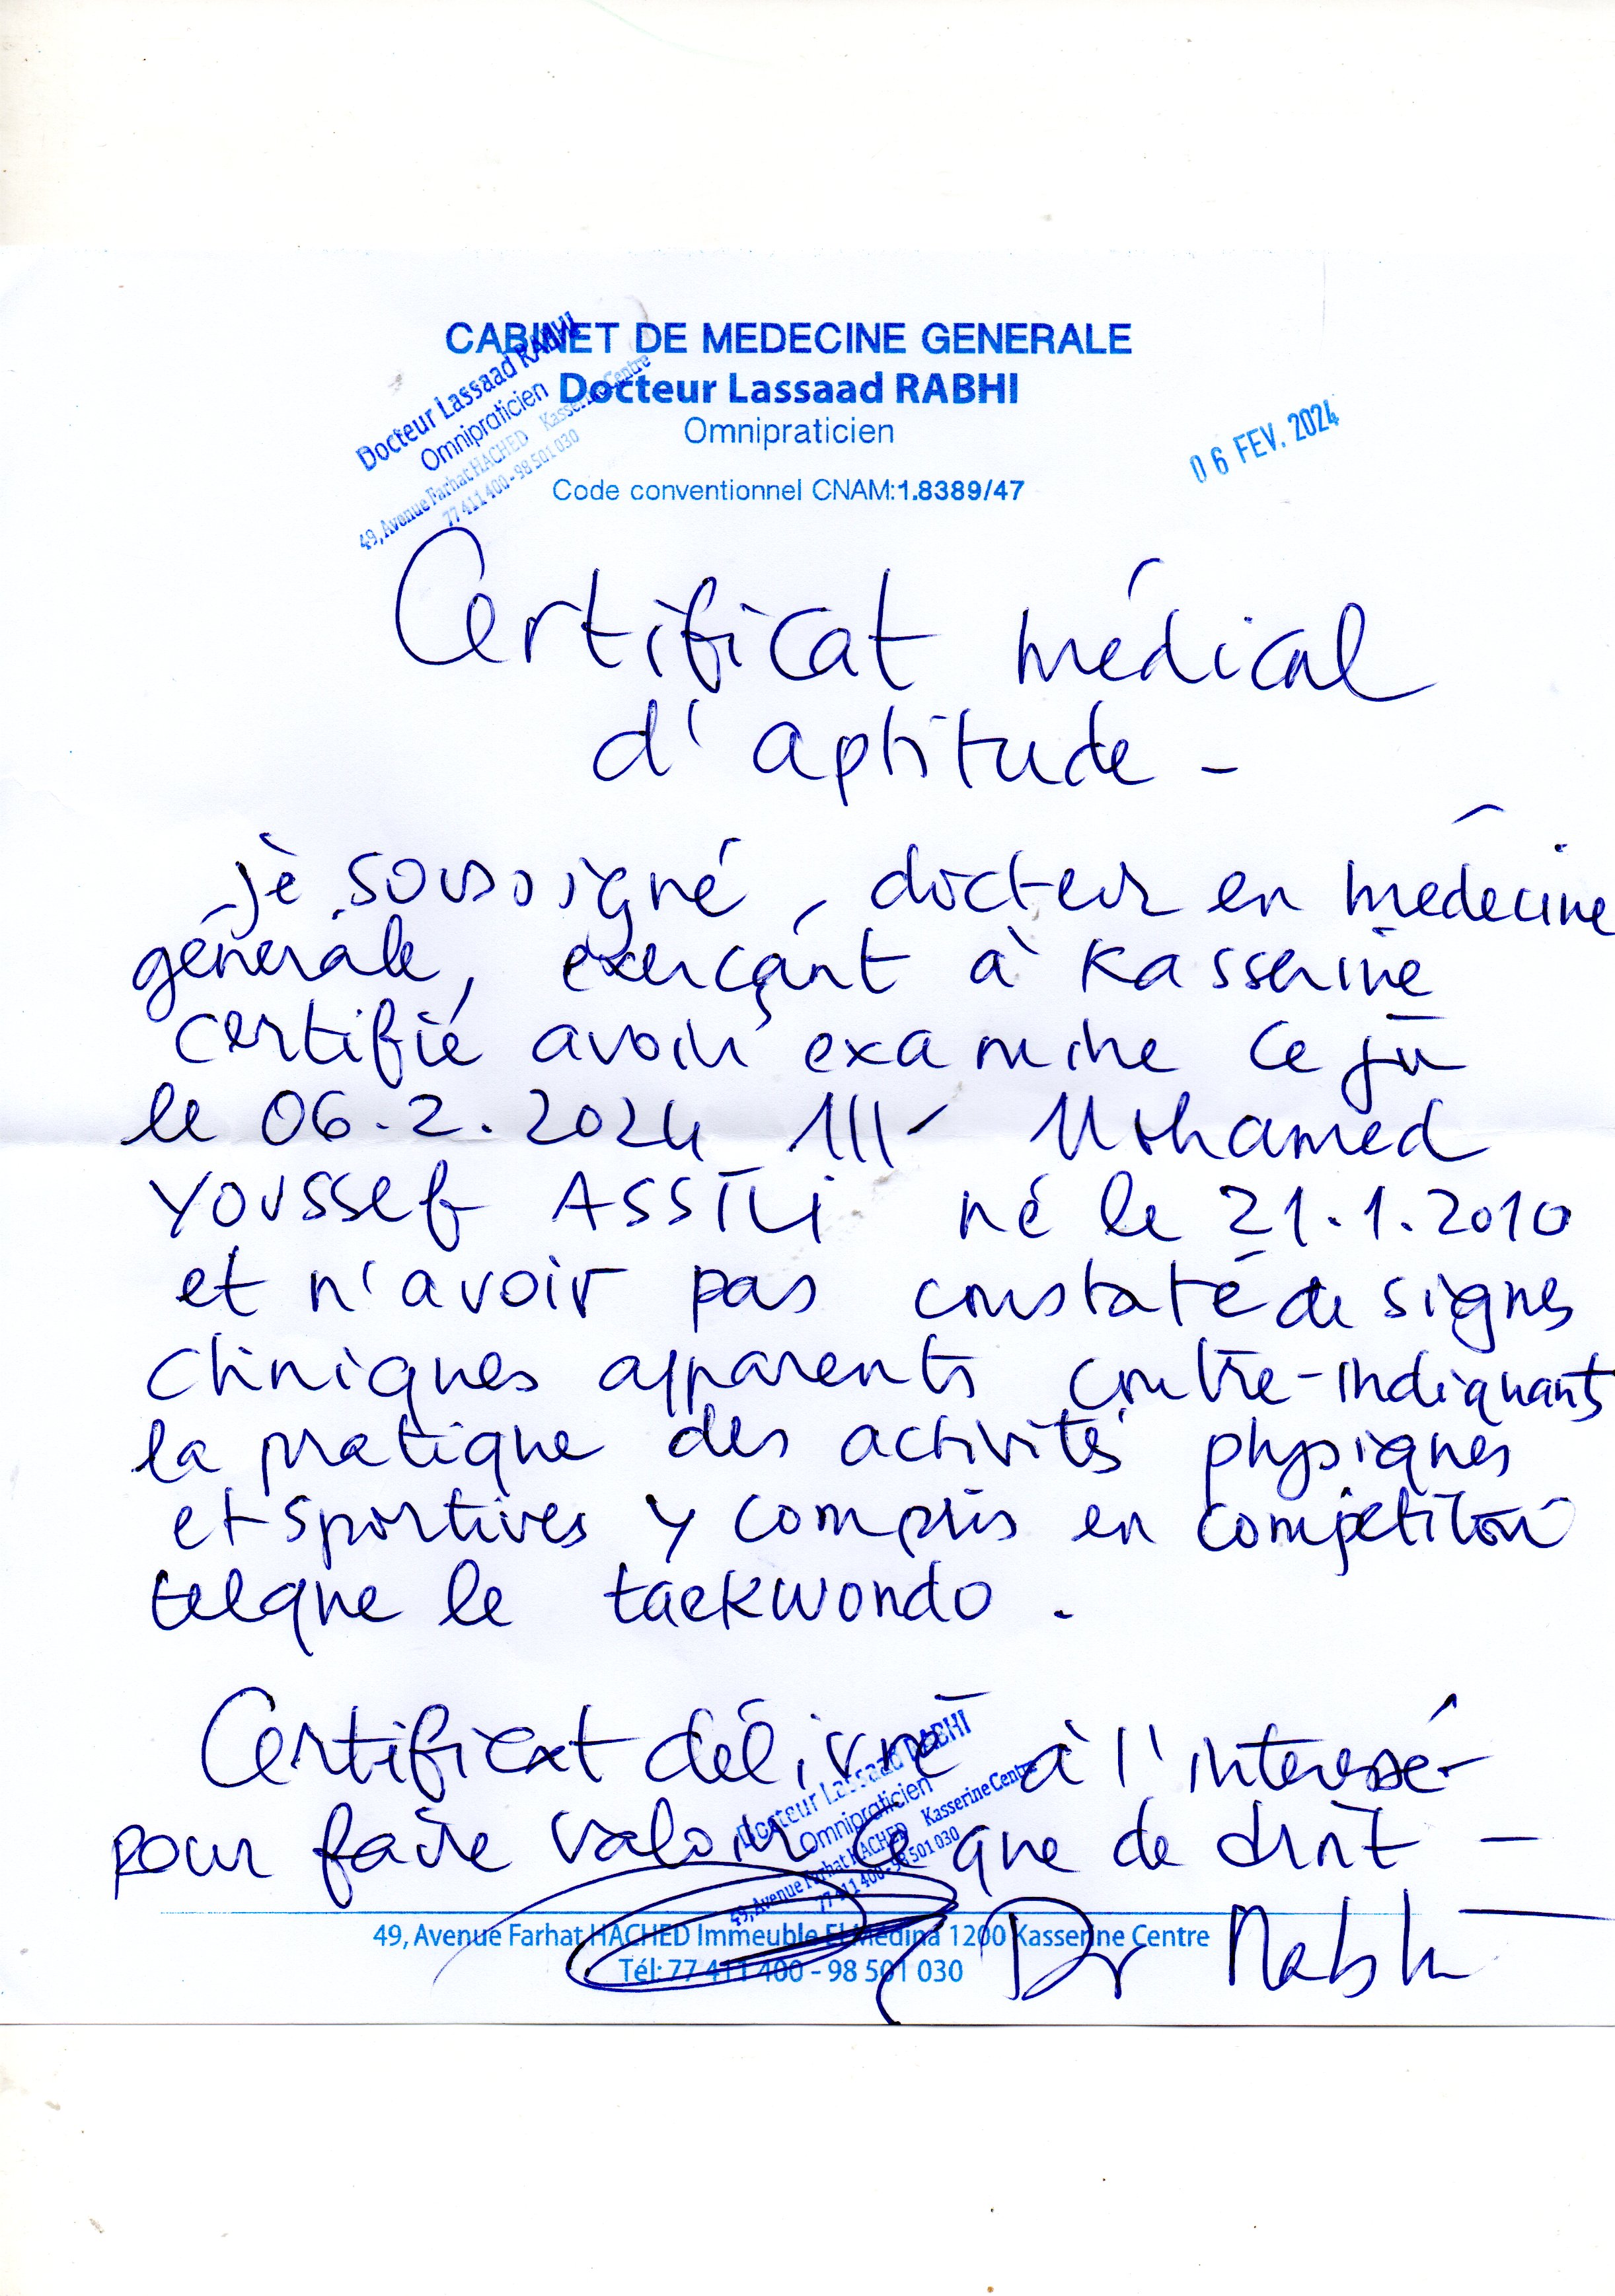 CABINET DE MEDECINE GENERALE
Docteur Lassaad RABHI
Omnipraticien
Code conventionnel CNAM:1.8389/47
Docteur Lassaad RABHI
Omnipraticien
49, Avenue Farhat HACHED Kasserine Centre
77 411 400 - 98 501 030
06 FEV. 2024
Certificat médical
d'aptitude -
je soussigné, docteur en médecine
générale, exerçant à Kasserine
certifie avoir examiné ce jour
le 06.2.2024 Mohamed
Youssef ASSILI né le 21.1.2010
et n'avoir pas constaté de signes
cliniques apparents contre-indiquants
la pratique des activités physiques
et sportives y compris en compétition
telque le taekwondo.
Certificat délivré à l'interessé
pour faire valoir ce que de droit -
Docteur Lassaad RABHI
Omnipraticien
49, Avenue Farhat HACHED Kasserine Centre
77 411 400 - 98 501 030
Dr Rabhi
49, Avenue Farhat HACHED Immeuble El Medina 1200 Kasserine Centre
Tél: 77 411 400 - 98 501 030